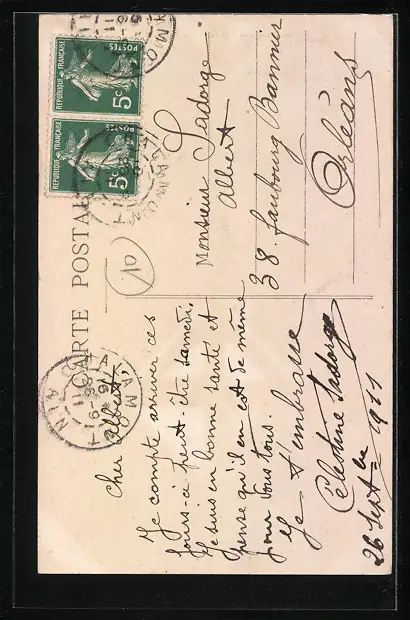 CARTE POSTALE
RÉPUBLIQUE FRANÇAISE
POSTES
5c
RÉPUBLIQUE FRANÇAISE
POSTES
5c
10
Monsieur Ladorge
Albert
38. faubourg Bannier
Orléans
Cher Albert
Je compte arriver ces
jours-ci peut-être samedi.
Je suis en bonne santé et
pense qu'il en est de même
pour vous tous.
Je t'embrasse
Célestine Ladorge
26 Sept 1911